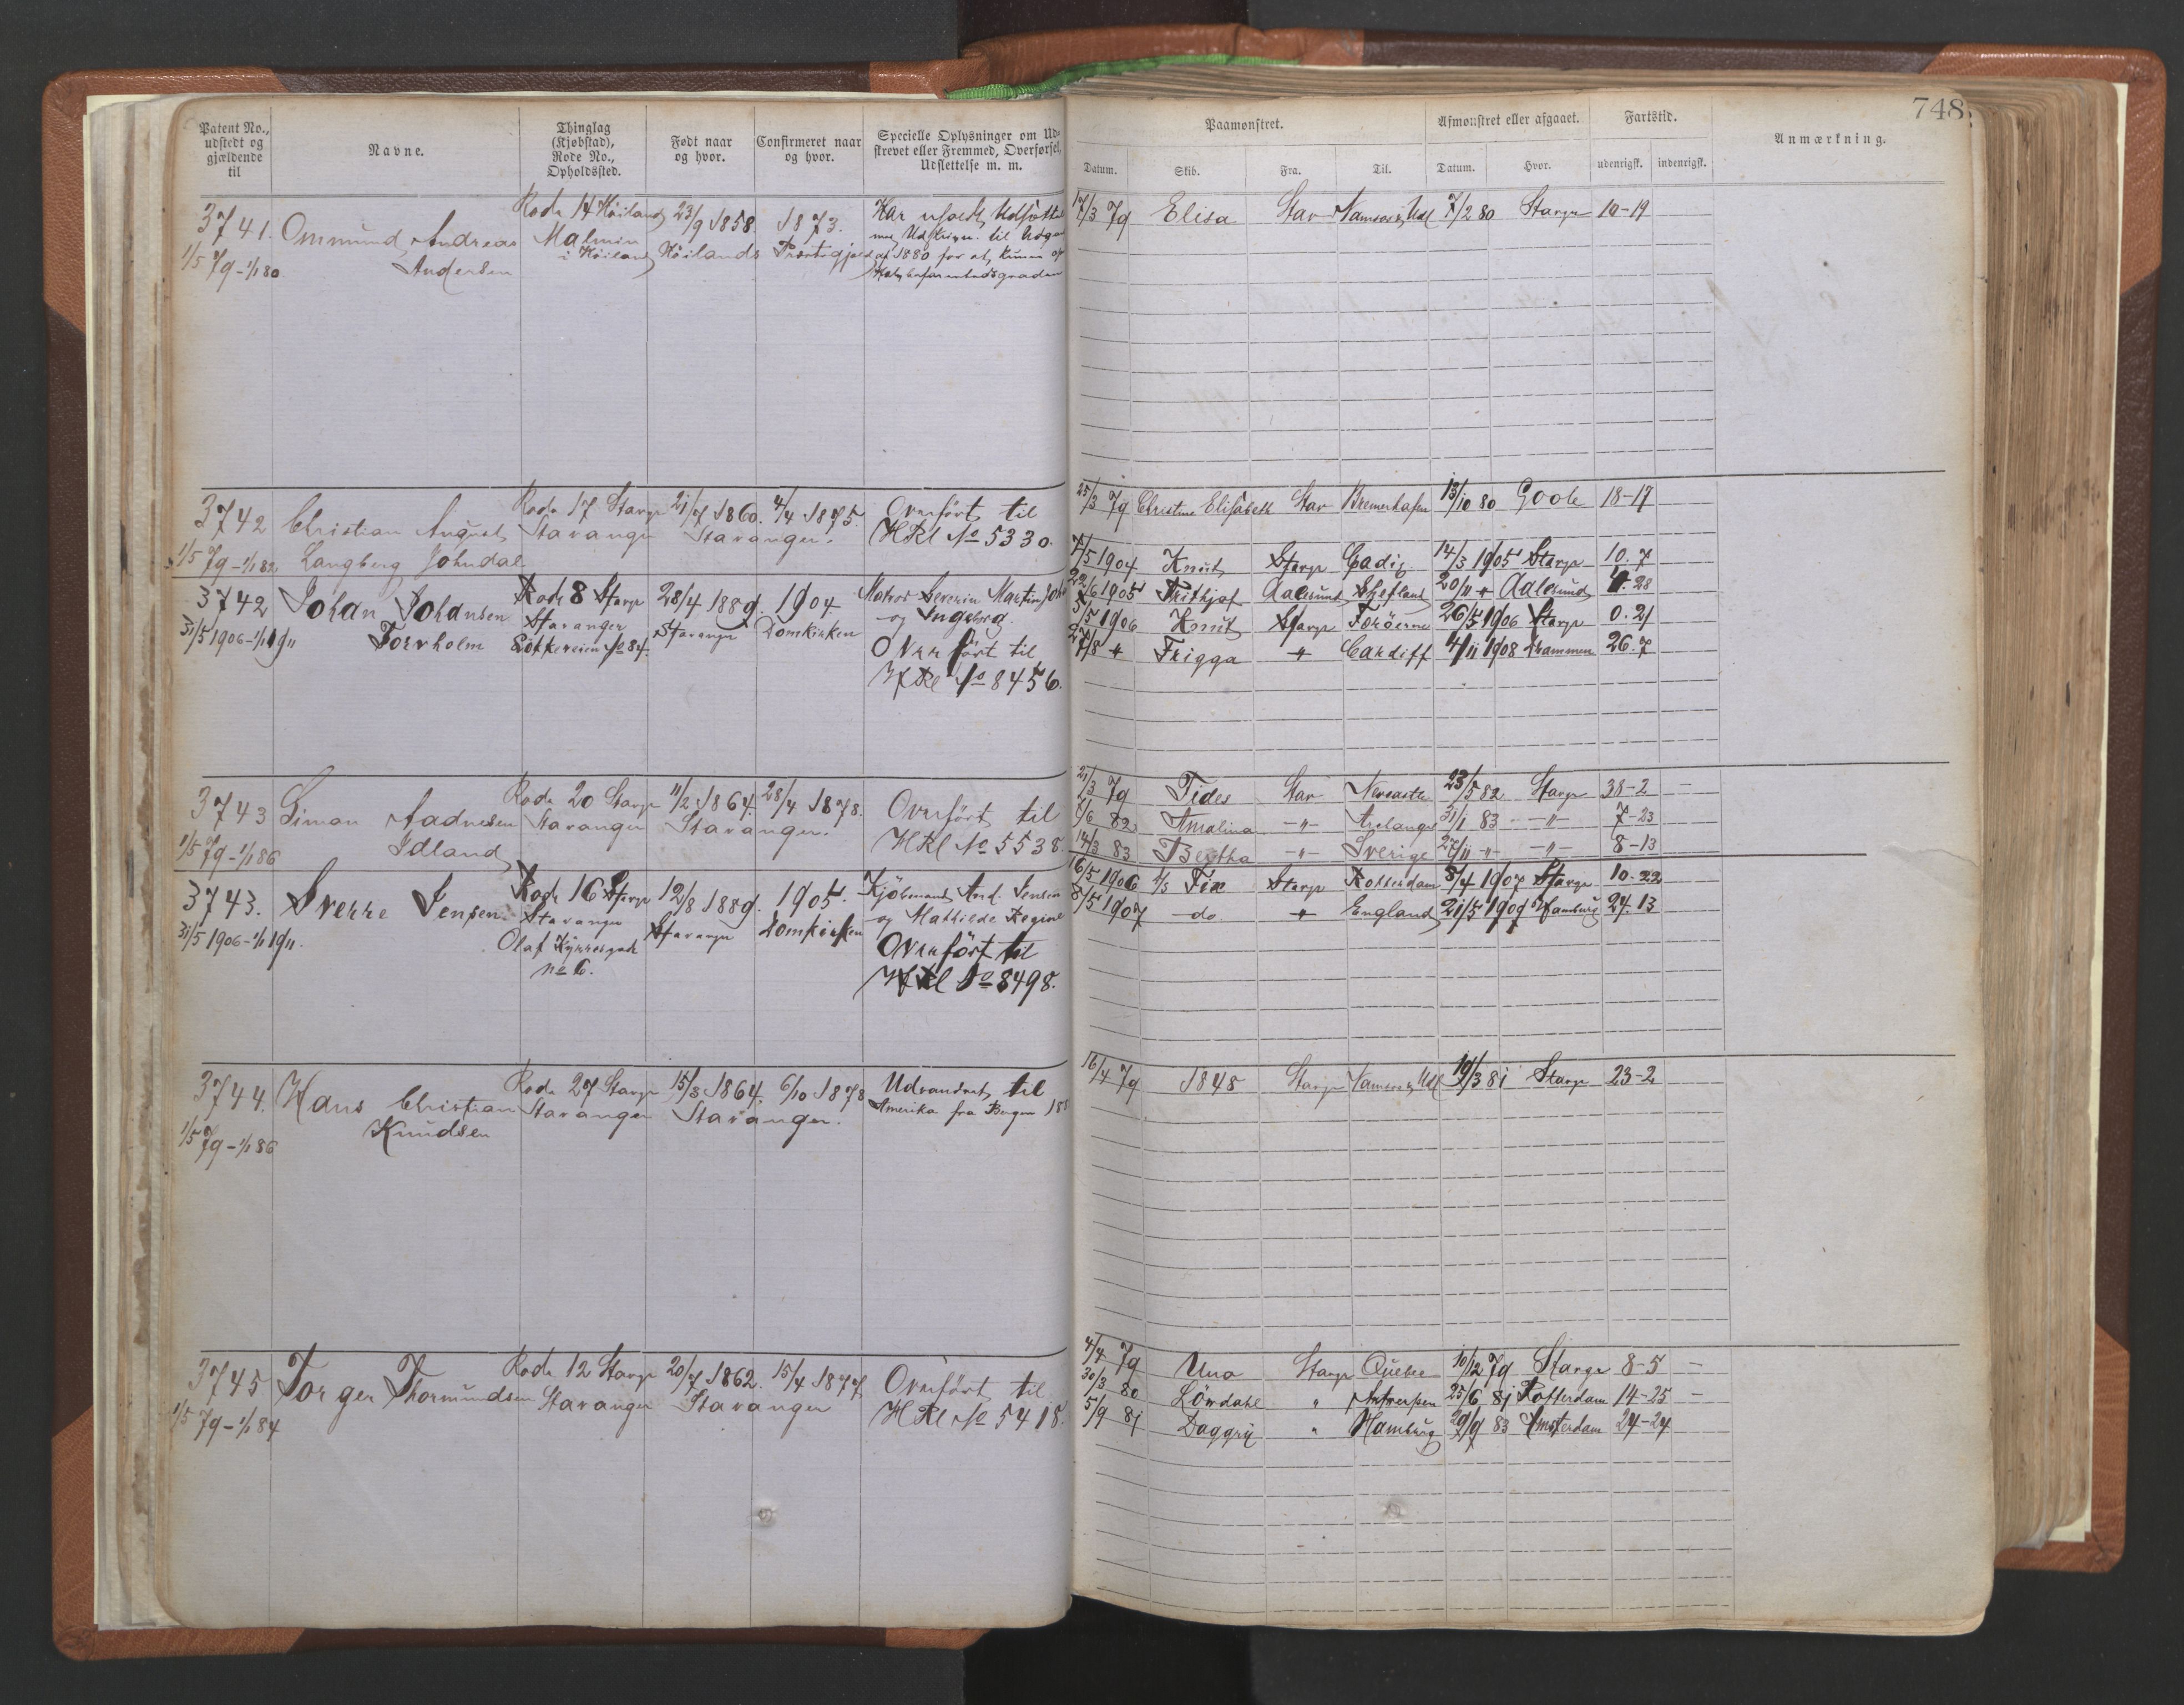 Patent No., udstedt og gjældende til
Navne.
Thinglag (Kjøbstad), Rode No., Opholdssted.
Født naar og hvor.
Confirmeret naar og hvor.
Specielle Oplysninger om Udskrevet eller Fremmed, Overførsel, Udslettelse m. m.
Paamønstret.
Afmønstret eller afgaaet.
Fartstid.
748.
Anmærkning.
Datum. Skib. Fra. Til. Datum. Hvor. udenrigsk. indenrigsk.
3741. Ommund Andreas Rode 14 Höiland 23/9 1858. 1873.
1/5 79-1/1 80 Andersen Malmin i Höiland Höilands Præstegjæld
af 1880 for at
17/3 79 Elisa Star Namsos, Udl 7/2 80 Stavgr 10-19
3742 Christian August Rode 17 Stavgr 21/7 1860. 4/4 1875. Overført til
1/5 79-1/1 82 Langberg Johndal Stavanger Stavanger. HRl No 5330.
25/3 79 Christine Elisabeth Star Bremerhafen 13/10 80 Goole 18-17
3742 Johan Johansen Rode 8 Stavgr 28/4 1889. 1904. Matros Severin Martin
31/5 1906-1/1 1911 Torvholm Stavanger Stavanger Domkirken og Ingeborg.
No 84. Overført til
HRl No 8456.
7/5 1904 Knut Stavgr Cadiz 14/3 1905 Stavgr 10. 7
22/6 1905 Fritjof Aalesund Shetland 20/11 " Aalesund 4. 28
5/5 1906 Knut Stavgr Foröerne 26/5 1906 Stavgr 0. 21
27/8 " Frigga " Cardiff 4/11 1908 Drammen 26. 7
3743 Simon Aadnesen Rode 20 Stavgr 11/2 1864. 28/4 1878. Overført til
1/5 79-1/1 86 Idland Stavanger Stavanger. HRl No 5538.
21/3 79 Fides Star Newcastle 23/5 82 Stavgr 38-2
7/6 82 Amalina -"- Archangel 31/1 83 -"- 7-23
14/3 83 Bertha -"- Sverige 27/11 -"- -"- 8-13
3743. Sverre Jensen Rode 16 Stavgr 12/8 1889. 1905. Kjöbmand And. Jensen
31/5 1906-1/1 1911. Stavanger Stavanger Domkirken og Mathilde Regine
Olaf Kyrresgade Overført til
No 6. HRl No 8498.
16/5 1906 S/S Fix Stavgr Rotterdam 8/4 1907 Stavgr 10. 22
8/5 1907 do " England 21/5 1909 Hamburg 24. 13
3744. Hans Christian Rode 27 Stavgr 15/3 1864. 6/10 1878 Udvandret til
1/5 79-1/1 86 Knudsen Stavanger Stavanger. Amerika fra Bergen
16/4 79 1848 Stavgr Namsos, Udl 19/3 81 Stavgr 23-2
3745 Torger Thormundsen Rode 12 Stavgr 20/7 1862. 15/4 1877. Overført til
1/5 79-1/1 84 Stavanger Stavanger HRl No 5418.
4/4 79 Una Stavgr Quebec 10/12 79 Stavgr 8-5
30/3 80 Lövdahl " Antwerpen 25/6 81 Rotterdam 14-25
5/9 81 Daggry " Hamburg 29/9 83 Amsterdam 24-24